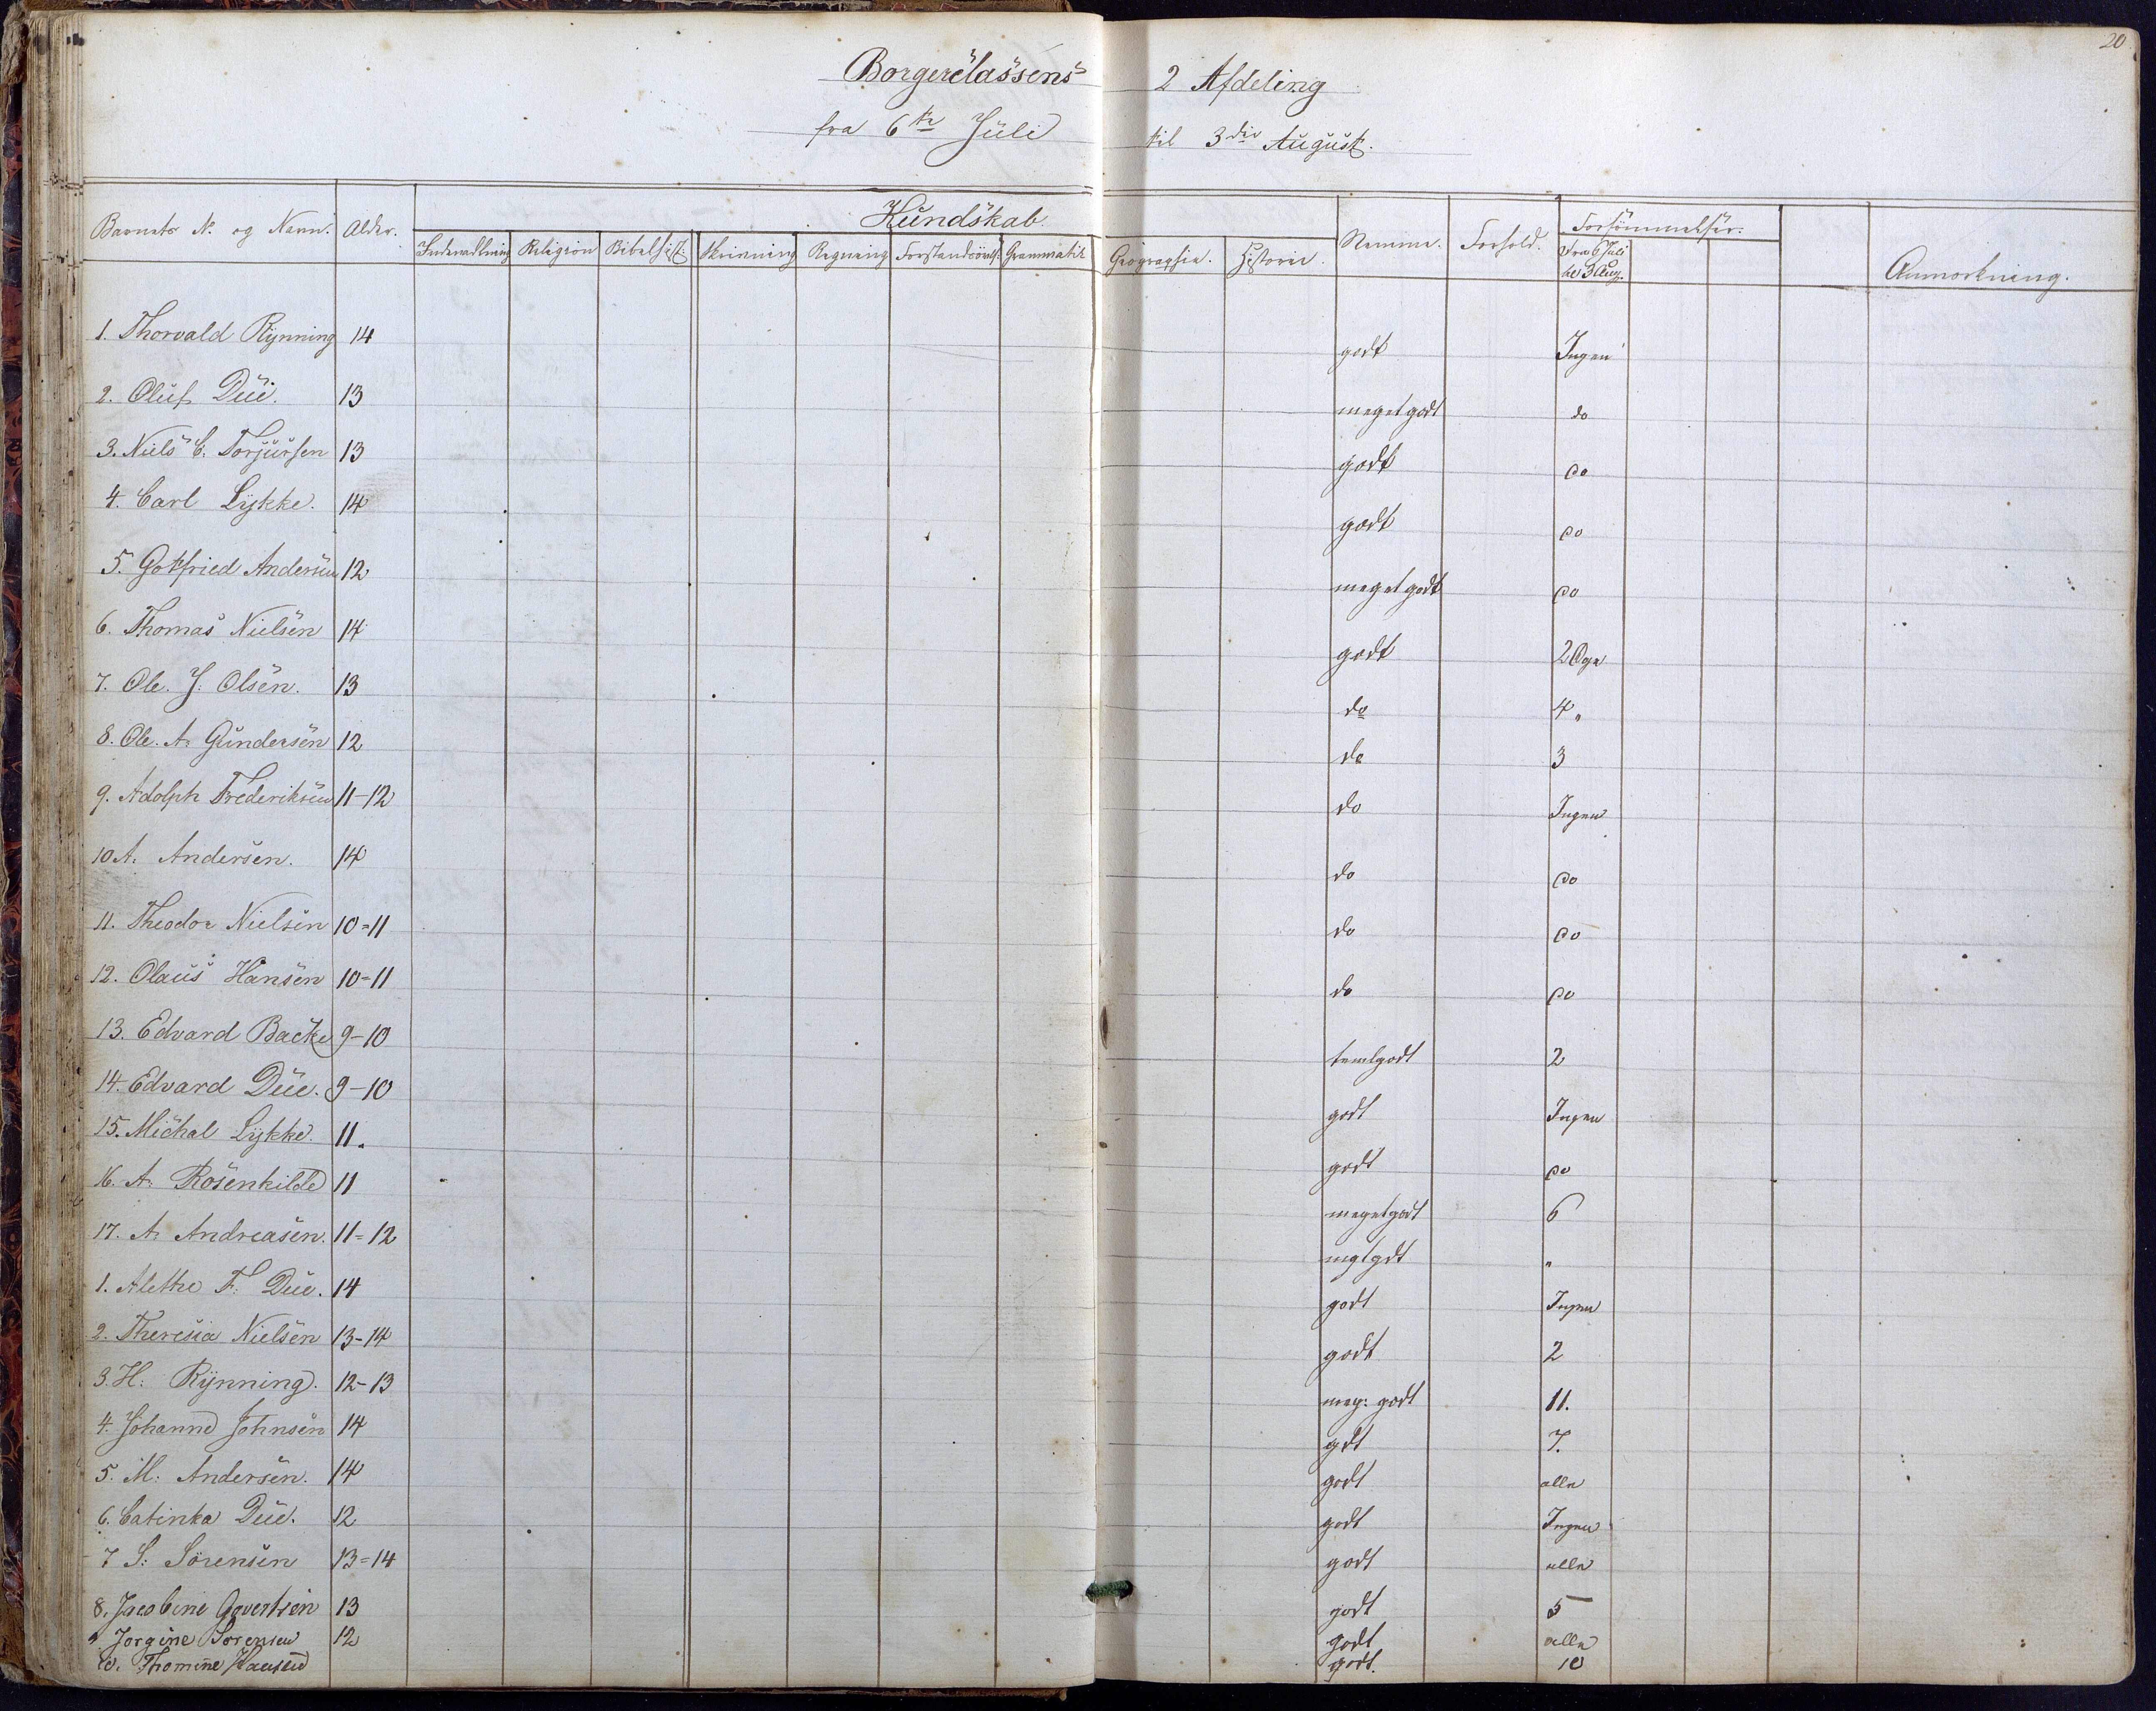 20
Borgerclassens 2 Afdeling
fra 6te Juli til 3die August.
Barnets No og Navn. Alder. Kundskab. Nemme. Forhold. Forsömmelser. Anmærkning.
Indenadlæsning Religion Bibelhist. Skrivning Regning Forstandsövels. Grammatik Geographie. Historie. Fra 6 Juli til 3 Aug.
1. Thorvald Rynning 14 godt Ingen
2. Oluf Due. 13 meget godt do
3. Niels C. Torjussen 13 godt do
4. Carl Lykke. 14 godt do
5. Gotfried Andersen 12 meget godt do
6. Thomas Nielsen 14 godt 2 Dge
7. Ole. J: Olsen. 13 do 4 "
8. Ole. A: Gundersen 12 do 3
9. Adolph Frederiksen 11-12 do Ingen
10 A: Andersen. 14 do do
11. Theodor Nielsen 10=11 do do
12. Olaus Hansen 10=11 do do
13. Edvard Backe 9-10 temlgodt 2
14. Edvard Due. 9-10 godt Ingen
15. Michal Lykke. 11. godt do
16. A: Rosenkilde 11 meget godt 6
17. A: Andreasen. 11=12 mgtgdt "
1. Alethe F: Due. 14 godt Ingen
2. Theresia Nielsen 13-14 godt 2
3. H: Rynning. 12-13 meg: godt 11.
4. Johanne Johnsen 14 gdt 7.
5. M: Andersen. 14 godt alle
6. Catinka Due. 12 godt Ingen
7 S: Sörensen 13=14 godt alle
8. Jacobine Govertsen 13 godt 5
9 Jorgine Sorensen 12 godt alle
10. Thomine Hansen godt. 10